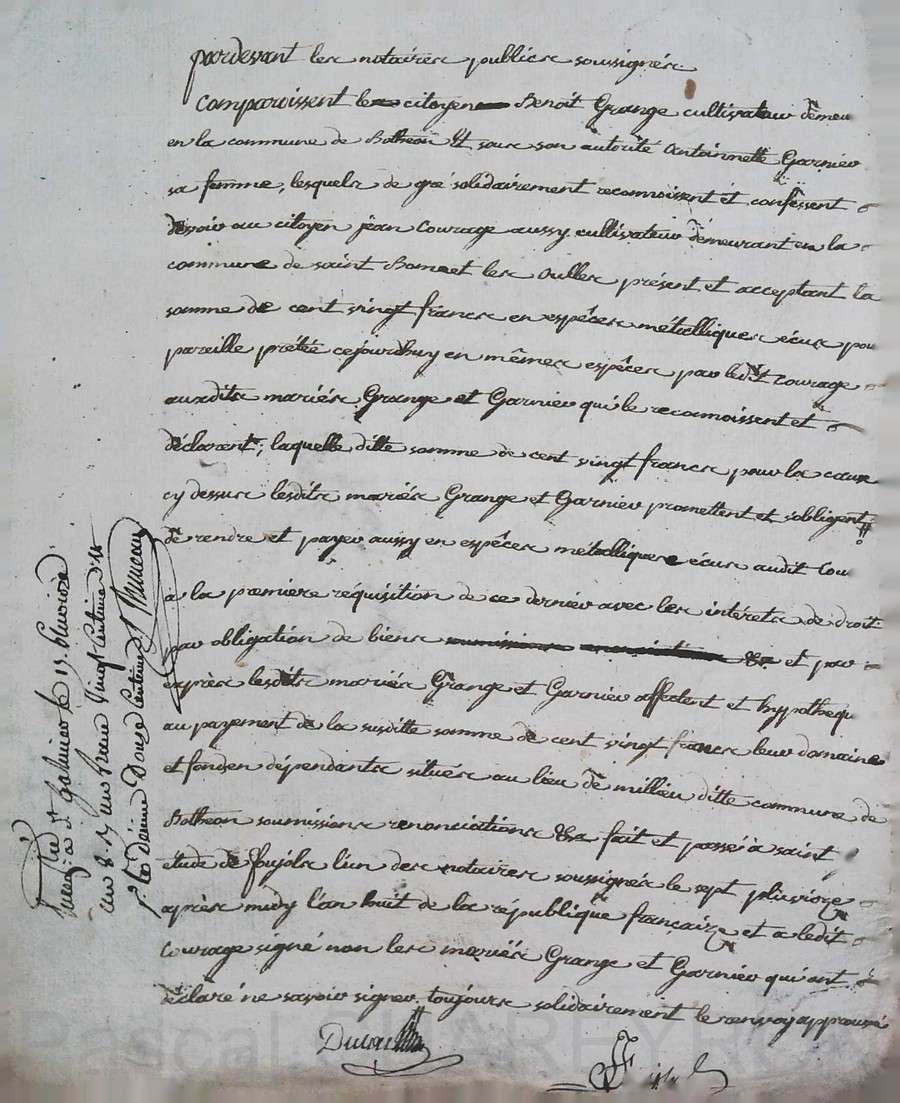 pardevant les notaires publics soussignés
Comparoissent le citoyen Benoit Grange cultivateur demeu
en la commune de Botheon Et sous son autorité antoinette Garnier
sa femme, lesquels de gré solidairement reconnoissent et confessent
devoir au citoyen jean Courage aussy cultivateur demeurant en la
commune de saint Bonnet les Oulles présent et acceptant la
somme de cent vingt francs en espéces métalliques écus pou
pareille prétée cejourdhuy en mêmes espêces par ledit Courage
auxdits mariés Grange et Garnier qui le reconnoissent et
déclarent, laquelle ditte somme de cent vingt francs pour la cause
cy dessus lesdits mariés Grange et Garnier promettent et s'obligent
de rendre et payer aussy en espêces métalliques écus audit Cou
a la premiere réquisition de ce dernier avec les intérets de droit
par obligation de biens &a et par
exprès lesdits mariés Grange et Garnier affectent et hypothequ
au payement de la susditte somme de cent vingt francs leur domaine
et fonden dépendants situés au lieu de millieu ditte commune de
Botheon soumissions renonciations &a fait et passé à saint
étude de foujols l'un des notaires soussignés le sept pluviose
après midy l'an huit de la république française et a ledit
Courage signé non les mariés Grange et Garnier qui ont
déclaré ne savoir signer toujours solidairement le renvoy approuvé
a st Galmier le 15 pluviose
an 8. un franc vingt centimes
Le Décime Douze Centimes
Pascal CHAREYRON